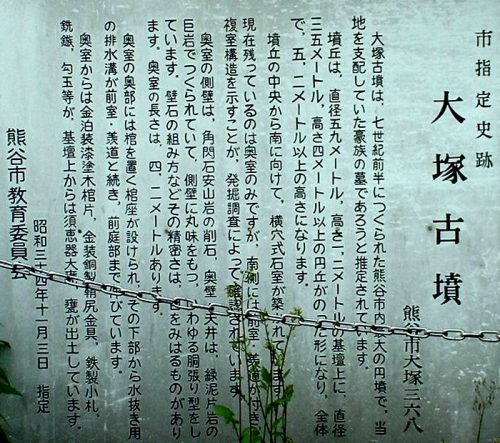 市指定史跡
大塚古墳
熊谷市大塚三六八
大塚古墳は、七世紀前半につくられた熊谷市内最大の円墳で、当
地を支配していた豪族の墓であろうと推定されています。
墳丘は、直径五九メートル、高さ一、二メートルの基壇上に、直径
三五メートル、高さ四メートル以上の円丘がのる形になり、全体
で、五、二メートル以上の高さになります。
墳丘の中央から南に向けて、横穴式石室が築かれています。
現在残っているのは奥室のみですが、南側には前室・羨道が付き
複室構造を示すことが、発掘調査によって確認されています。
奥室の側壁は、角閃石安山岩の削石、奥壁・天井は、緑泥片岩の
巨岩でつくられていて、側壁に丸味をもつ、いわゆる胴張り型をし
ています。壁石の組み方などその精密さは、目をみはるものがあり
ます。奥室の長さは、四、二メートルあります。
奥室の奥部には棺を置く棺座が設けられ、その下部から水抜き用
の排水溝が前室・羨道と続き、前庭部まで伸びています。
奥室からは金泊装漆塗木棺片、金装銅製鞘尻金具、鉄製小札、
銑鏃、勾玉等が、基壇上からは須恵器大甕、甕が出土しています。
昭和三十四年十一月三日 指定
熊谷市教育委員会